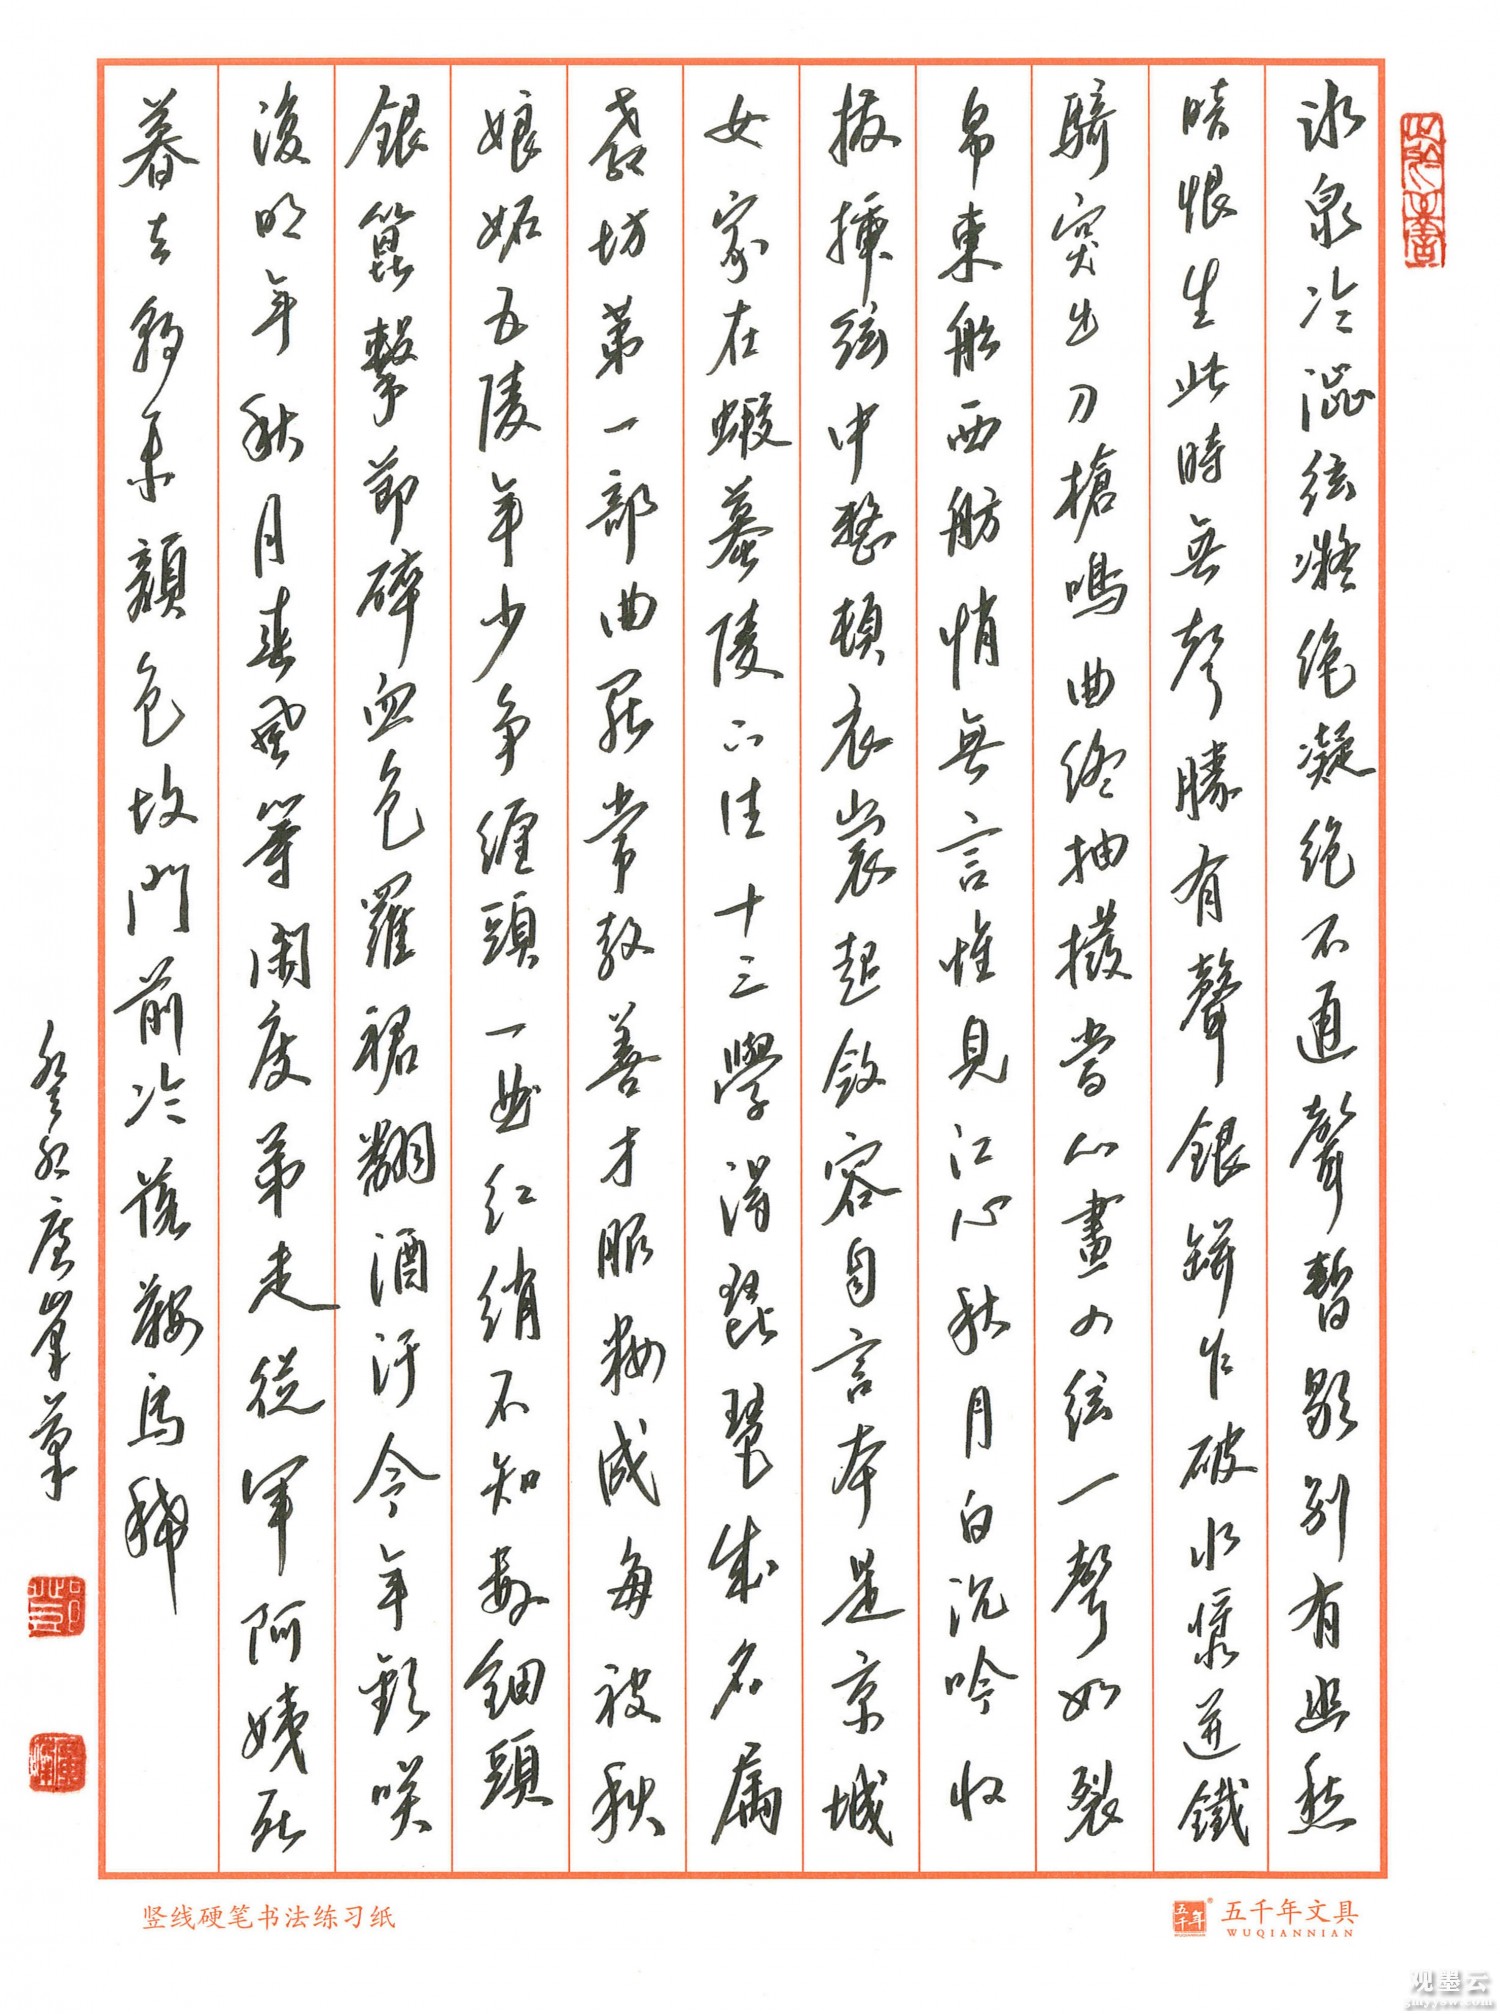 冰泉冷澀弦凝絶凝絶不通聲暫歇别有幽愁
暗恨生此時無聲勝有聲銀鉼乍破水漿迸鐵
騎突出刀槍鳴曲終抽撥當心畫四弦一聲如裂
帛東船西舫悄無言惟見江心秋月白沉吟收
撥插弦中整頓衣裳起斂容自言本是京城
女家在蝦蟇陵下住十三學得琵琶成名属
教坊第一部曲罷常教善才服妝成每被秋
娘妬五陵年少争纏頭一曲红綃不知數鈿頭
銀篦擊節碎血色羅裙翻酒汙今年歡咲
復明年秋月春風等閑度弟走從軍阿姨死
暮去朝来顔色故門前冷落鞍馬稀
癸卯唐峯草
竖线硬笔书法练习纸
五千年
五千年文具
WUQIANNIAN
观墨云
gmyyow.com